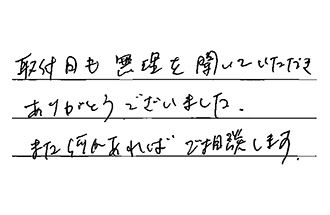 取付日も無理を聞いていただき
ありがとうございました.
また何かあればご相談します.